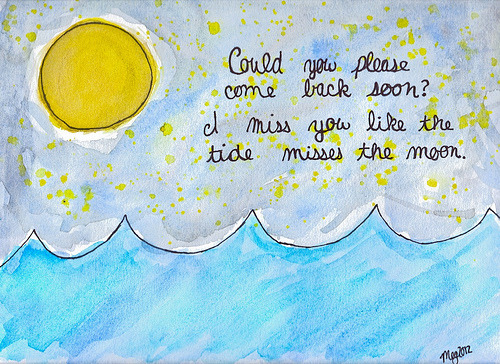 Could you please
come back soon?
I miss you like the
tide misses the moon.
Meg2012